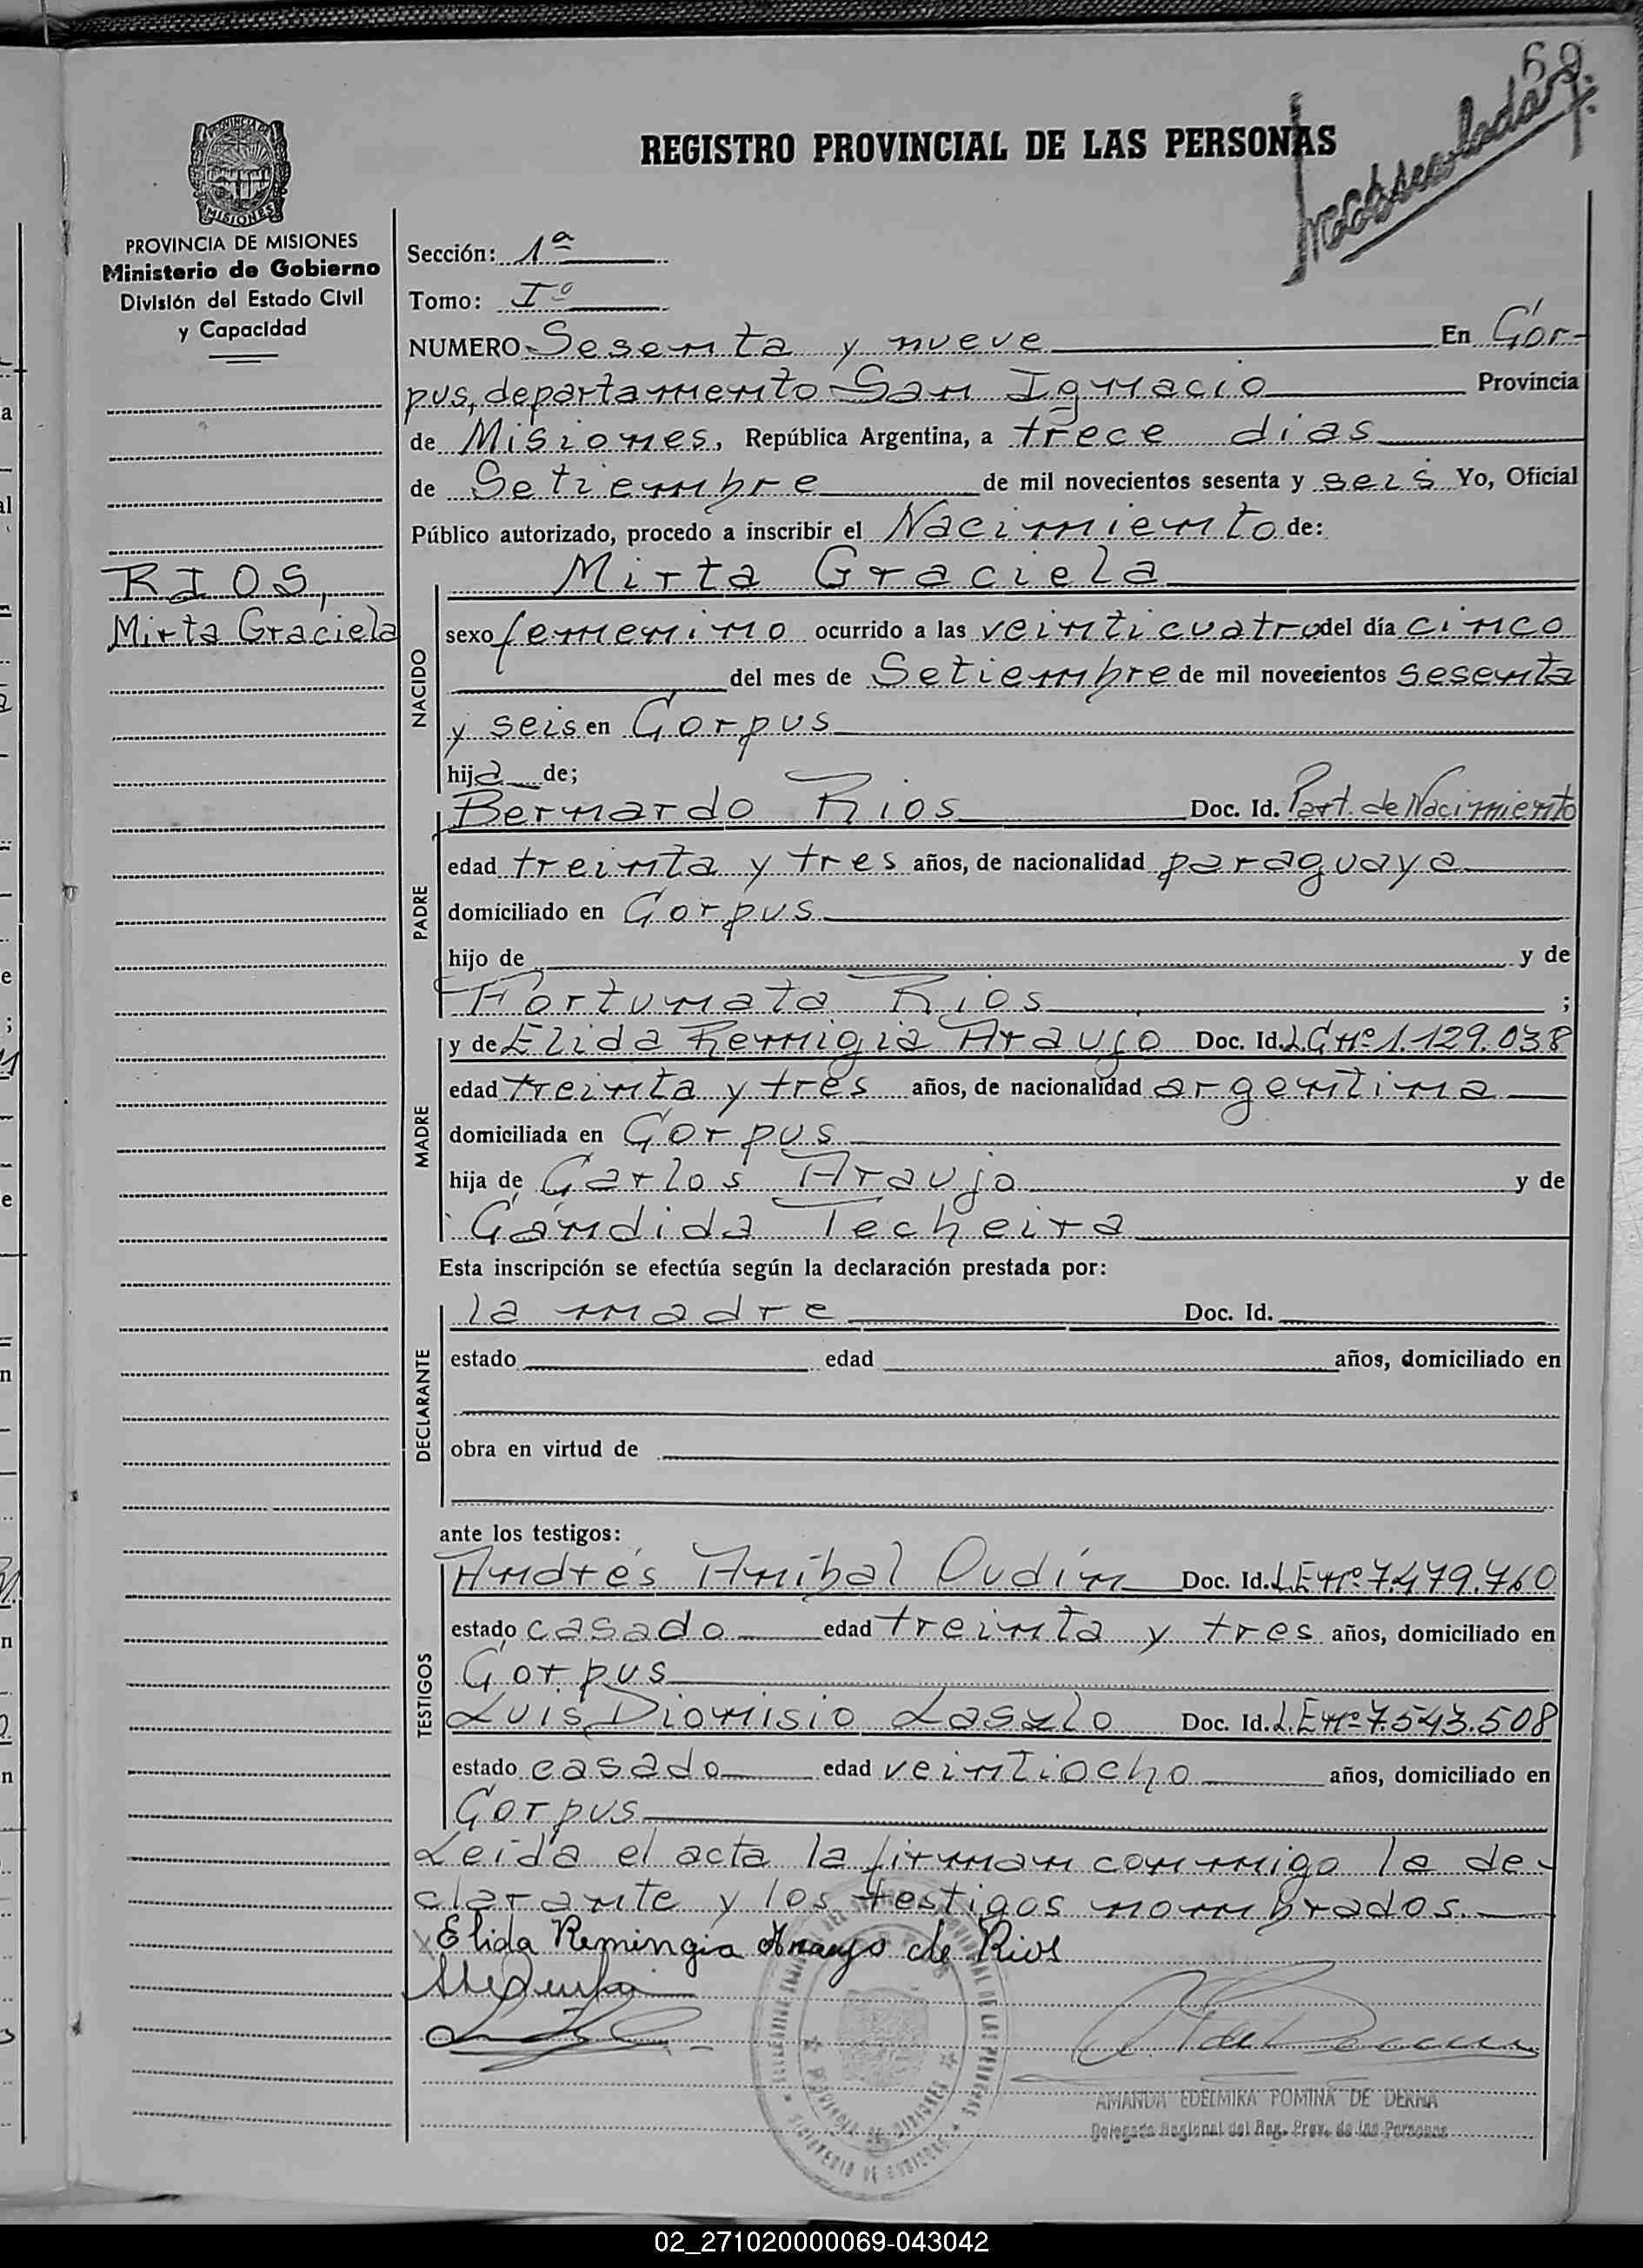 69
REGISTRO PROVINCIAL DE LAS PERSONAS
PROVINCIA DE MISIONES
MISIONES
PROVINCIA DE MISIONES
Ministerio de Gobierno
División del Estado Civil
y Capacidad
RIOS,
Mirta Graciela
Sección: 1ª
Tomo: Iº
NUMERO Sesenta y nueve En Cor-
pus, departamento San Ignacio Provincia
de Misiones, República Argentina, a trece dias
de Setiembre de mil novecientos sesenta y seis Yo, Oficial
Público autorizado, procedo a inscribir el Nacimiento de:
NACIDO
Mirta Graciela
sexo femenino ocurrido a las veinticuatro del día cinco
del mes de Setiembre de mil novecientos sesenta
y seis en Corpus
hija de;
PADRE
Bernardo Rios Doc. Id. Part. de Nacimiento
edad treinta y tres años, de nacionalidad paraguaya
domiciliado en Corpus
hijo de y de
Fortunata Rios ;
MADRE
y de Elida Remigia Araujo Doc. Id. L.C nº 1.129.038
edad treinta y tres años, de nacionalidad argentina
domiciliada en Corpus
hija de Carlos Araujo y de
Cándida Techeira
Esta inscripción se efectúa según la declaración prestada por:
DECLARANTE
la madre Doc. Id.
estado edad años, domiciliado en
obra en virtud de
ante los testigos:
TESTIGOS
Andrés Aníbal Dudín Doc. Id. L.E nº 7.479.760
estado casado edad treinta y tres años, domiciliado en
Corpus
Luis Dionisio Laszlo Doc. Id. L.E nº 7.543.508
estado casado edad veintiocho años, domiciliado en
Corpus
Leida el acta la firman conmigo la de-
clarante y los testigos nombrados.
Elida Remingia Araujo de Rios
AMANDA EDELMIRA POMINA DE DERNA
Delegada Regional del Reg. Prov. de las Personas
PROVINCIA DE MISIONES
MINISTERIO DE GOBIERNO
02_271020000069-043042